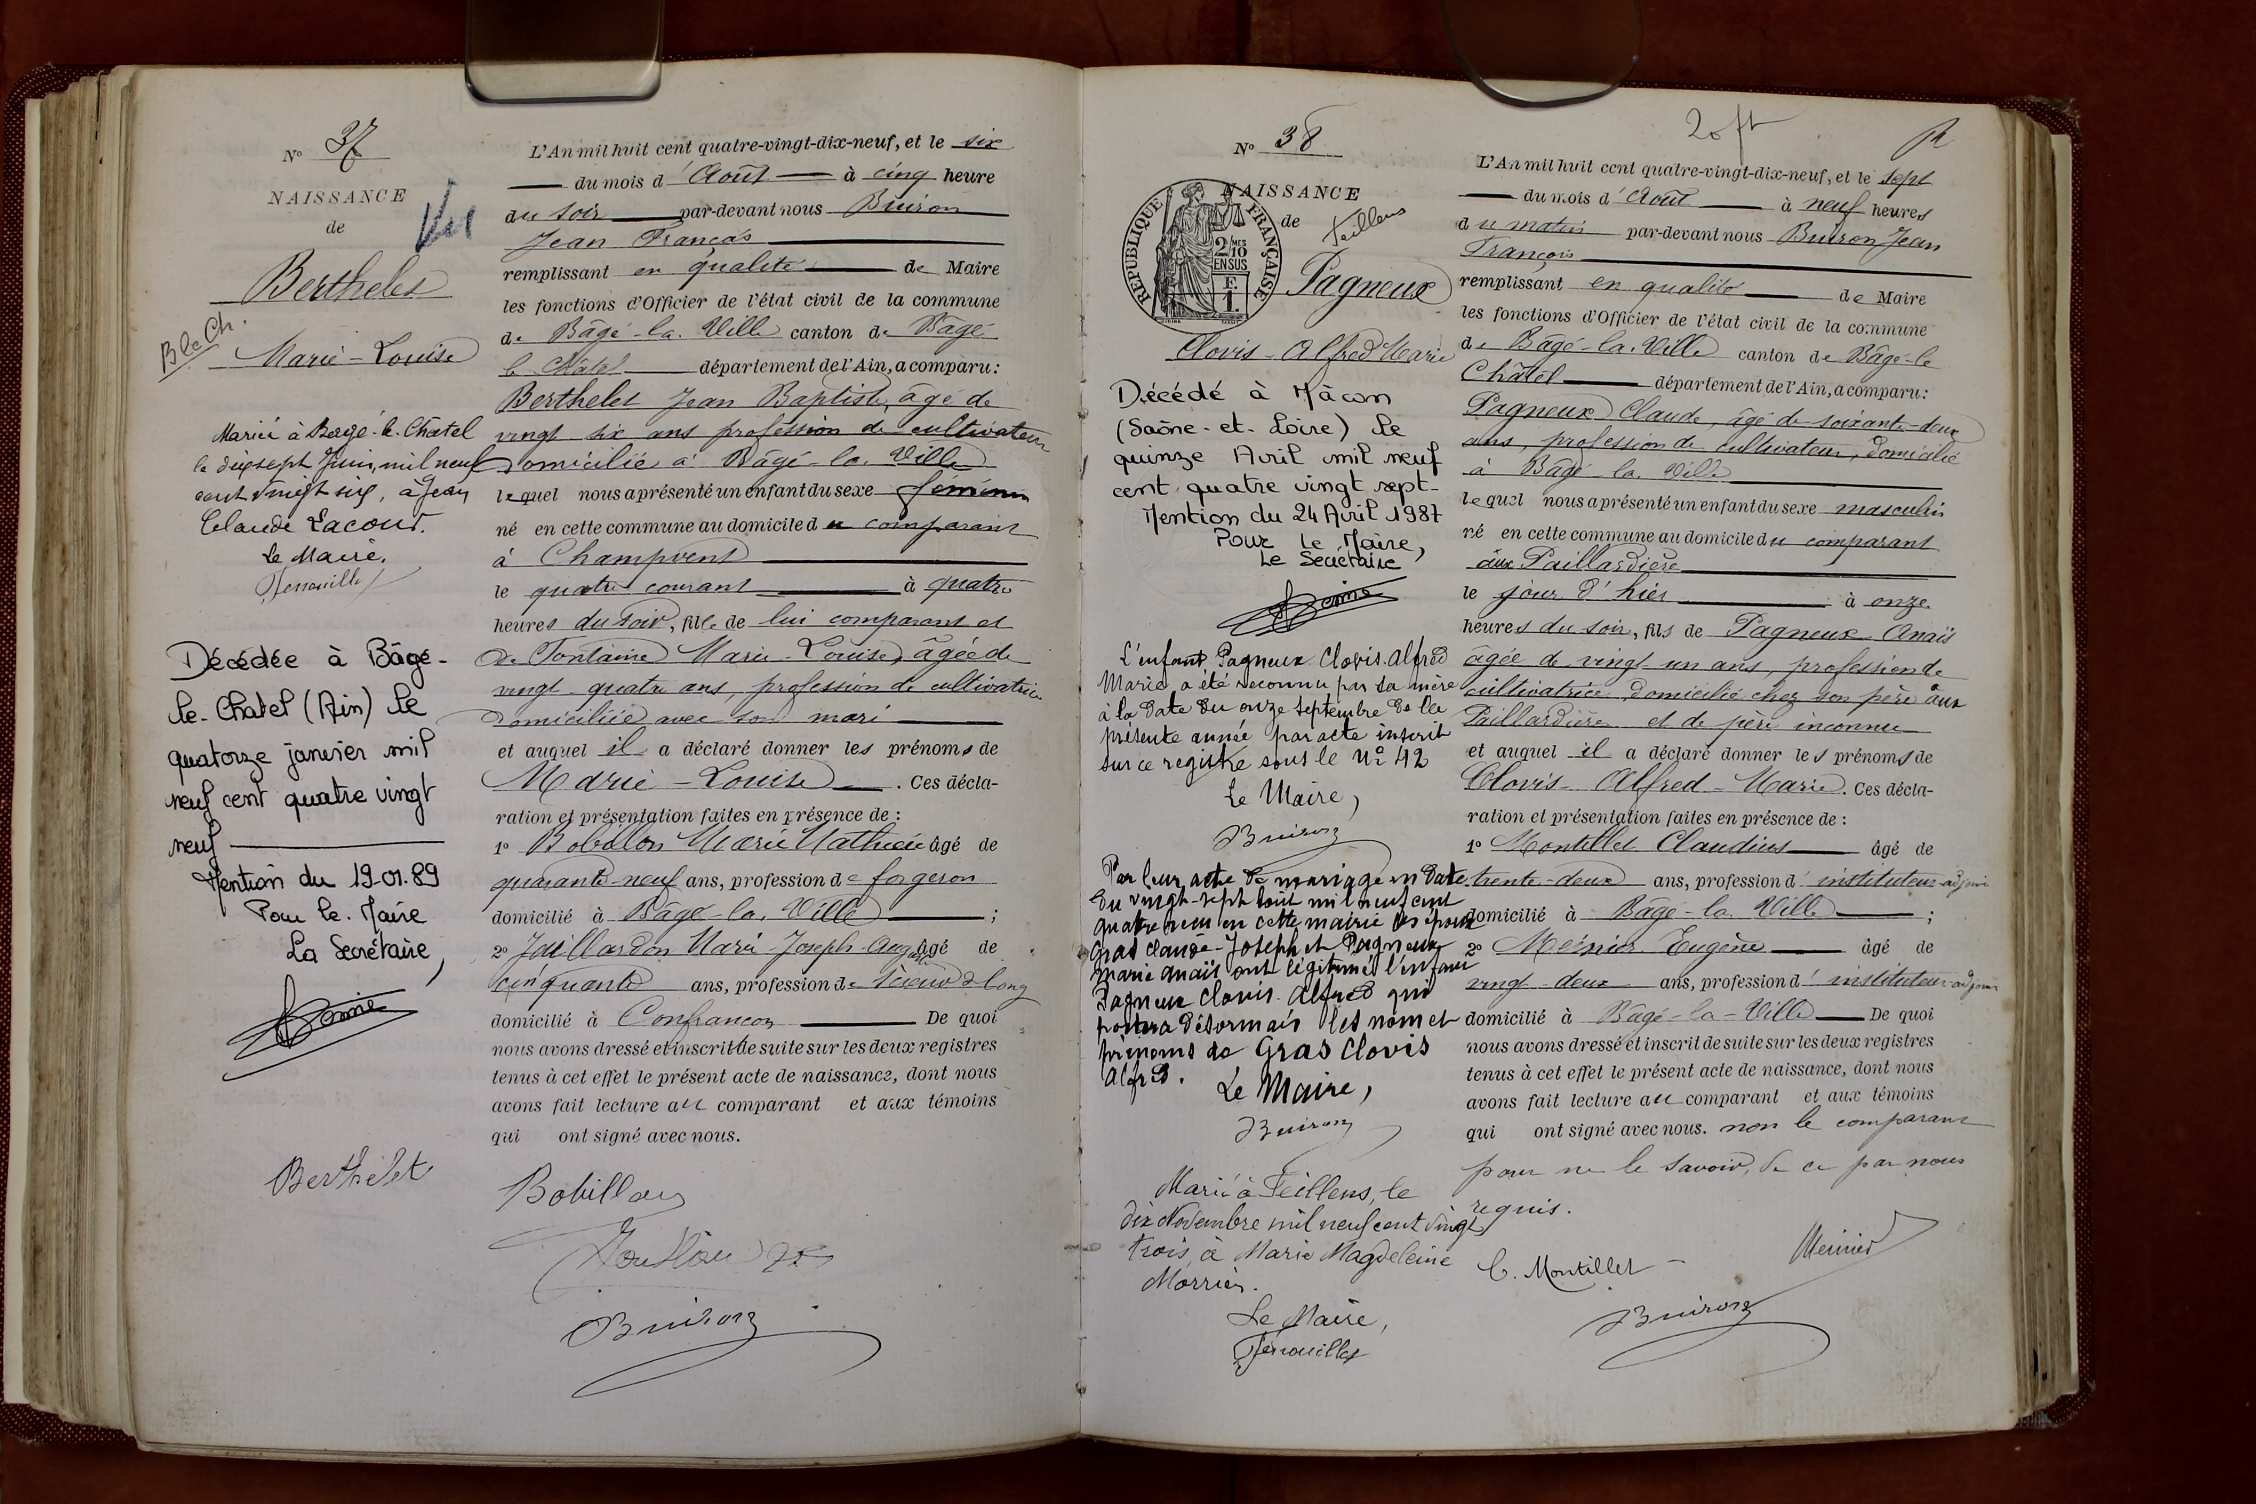 Nº 37
NAISSANCE
de
Vu
Berthelet
B le Ch.
Marie-Louise
Marié à Baugé-le-Chatel
le dix sept Juin, mil neuf
cent vingt six, à Jean
Claude Lacour.
Le Maire,
Décédée à Bâgé-
le-Chatel (Ain) le
quatorze janvier mil
neuf cent quatre vingt
neuf
Mention du 19-01-89
Pour le Maire
La Secrétaire,
Berthelet
L'An mil huit cent quatre-vingt-dix-neuf, et le six
du mois d'Août à cinq heure
du soir par-devant nous Buiron
Jean Françcis
remplissant en qualité de Maire
les fonctions d'Officier de l'état civil de la commune
de Bâgé-la-Ville canton de Bâgé
le Châtel département de l'Ain, a comparu:
Berthelet Jean Baptiste, âgé de
vingt six ans profession de cultivateur
domicilié à Bâgé-la-Ville
lequel nous a présenté un enfant du sexe féminin
né en cette commune au domicile du comparant
à Champvent
le quatre courant à quatre
heures du soir, fille de lui comparant et
de Fontaine Marie-Louise, âgée de
vingt-quatre ans, profession de cultivatrice
domiciliée avec son mari
et auquel il a déclaré donner les prénoms de
Marie-Louise. Ces décla-
ration et présentation faites en présence de:
1º Bobillon Marie Mathieu âgé de
quarante-neuf ans, profession de forgeron
domicilié à Bâgé-la-Ville;
2º Marie-Joseph-Auguste âgé de
cinquante ans, profession de scieur de long
domicilié à Confrancon De quoi
nous avons dressé et inscrit de suite sur les deux registres
tenus à cet effet le présent acte de naissance, dont nous
avons fait lecture au comparant et aux témoins
qui ont signé avec nous.
Bobillon
Buiron
Nº 38
NAISSANCE
de
Feillens
RÉPUBLIQUE FRANÇAISE
2/10 MES
EN SUS
F.
1.
Pagneux
Clovis-Alfred Marie
Décédé à Mâcon
(Saône-et-Loire) le
quinze Avril mil neuf
cent quatre vingt sept-
Mention du 24 Avril 1987
Pour le Maire,
Le Secrétaire
L'enfant Pagneux Clovis Alfred
Marie a été reconnu par sa mère
à la date du onze Septembre de la
présente année par acte inscrit
sur ce registre sous le Nº 42
Le Maire,
Buiron
Par leur acte de mariage en date
du vingt-sept août mil neuf cent
quatre reçu en cette mairie les époux
Gras Claude-Joseph et Pagneux
Marie Anaïs ont légitimé l'enfant
Pagneux Clovis-Alfred qui
portera désormais les nom et
prénoms de Gras Clovis
Alfred.
Le Maire,
Buiron
Marié à Feillens, le
dix Novembre mil neuf cent vingt
trois, à Marie Magdeleine
Le Maire,
20 ft
L'An mil huit cent quatre-vingt-dix-neuf, et le sept
du mois d'Août à neuf heures
du matin par-devant nous Buiron Jean
François
remplissant en qualité de Maire
les fonctions d'Officier de l'état civil de la commune
de Bâgé-la-Ville canton de Bâgé-le
Châtel département de l'Ain, a comparu:
Pagneux Claude, âgé de soixante-deux
ans, profession de cultivateur, domicilié
à Bâgé-la-Ville
lequel nous a présenté un enfant du sexe masculin
né en cette commune au domicile du comparant
aux Paillardière
le jour d'hier à onze
heures du soir, fils de Pagneux Anaïs
âgée de vingt-un ans, profession de
cultivatrice, domicilié chez son père aux
Paillardière et de père inconnu
et auquel il a déclaré donner les prénoms de
Clovis-Alfred-Marie. Ces décla-
ration et présentation faites en présence de:
1º Montillet Claudius âgé de
trente-deux ans, profession d'instituteur-adjoint
domicilié à Bâgé-la-Ville;
2º Meinier Eugène âgé de
vingt-deux ans, profession d'instituteur-adjoint
domicilié à Bâgé-la-Ville De quoi
nous avons dressé et inscrit de suite sur les deux registres
tenus à cet effet le présent acte de naissance, dont nous
avons fait lecture au comparant et aux témoins
qui ont signé avec nous. non le comparant
pour ne le savoir, de ce par nous
requis.
C. Montillet
Meinier
Buiron